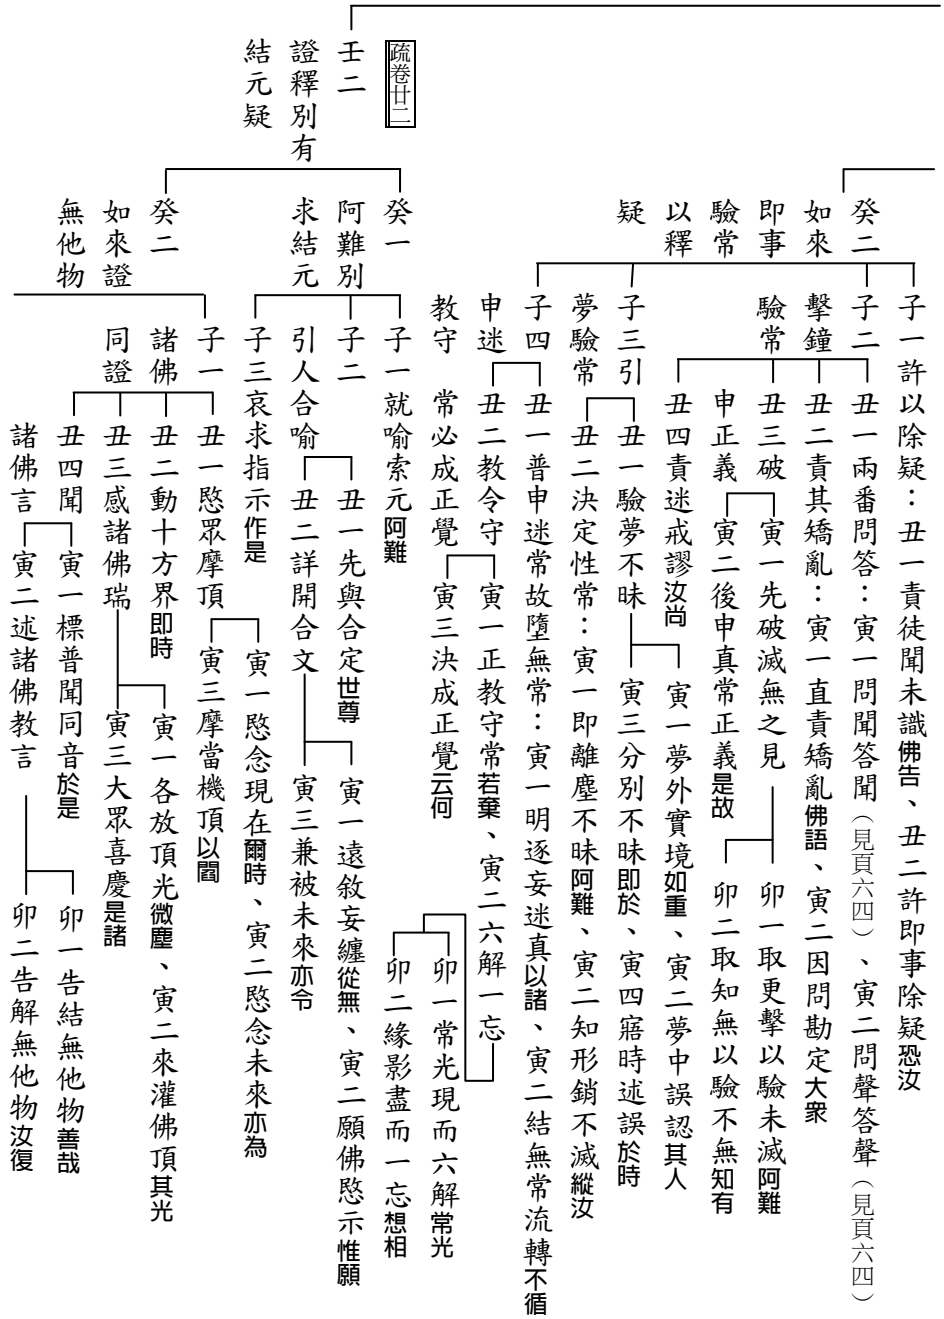 癸二
如來
即事
驗常
以釋
疑
子一許以除疑：丑一責徒聞未識佛告、丑二許即事除疑恐汝
子二
擊鐘
驗常
丑一兩番問答：寅一問聞答聞（見頁六四）、寅二問聲答聲（見頁六四）
丑二責其矯亂：寅一直責矯亂佛語、寅二因問勘定大衆
丑三破
申正義
寅一先破滅無之見
卯一取更擊以驗未滅阿難
卯二取知無以驗不無知有
寅二後申真常正義是故
丑四責迷戒謬汝尚
子三引
夢驗常
丑一驗夢不昧
寅一夢外實境如重、寅二夢中誤認其人
寅三分別不昧即於、寅四寤時述誤於時
丑二決定性常：寅一即離塵不昧阿難、寅二知形銷不滅縱汝
子四
申迷
教守
丑一普申迷常故墮無常：寅一明逐妄迷真以諸、寅二結無常流轉不循
丑二教令守
常必成正覺
寅一正教守常若棄、寅二六解一忘
卯一常光現而六解常光
卯二緣影盡而一忘想相
寅三決成正覺云何
疏卷廿二
壬二
證釋別有
結元疑
癸一
阿難別
求結元
子一就喻索元阿難
子二
引人合喻
丑一先與合定世尊
丑二詳開合文
寅一遠敘妄纏從無、寅二願佛愍示惟願
寅三兼被未來亦令
子三哀求指示作是
癸二
如來證
無他物
子一
諸佛
同證
丑一愍眾摩頂
寅一愍念現在爾時、寅二愍念未來亦為
寅三摩當機頂以閻
丑二動十方界即時
丑三感諸佛瑞
寅一各放頂光微塵、寅二來灌佛頂其光
寅三大眾喜慶是諸
丑四聞
諸佛言
寅一標普聞同音於是
寅二述諸佛教言
卯一告結無他物善哉
卯二告解無他物汝復